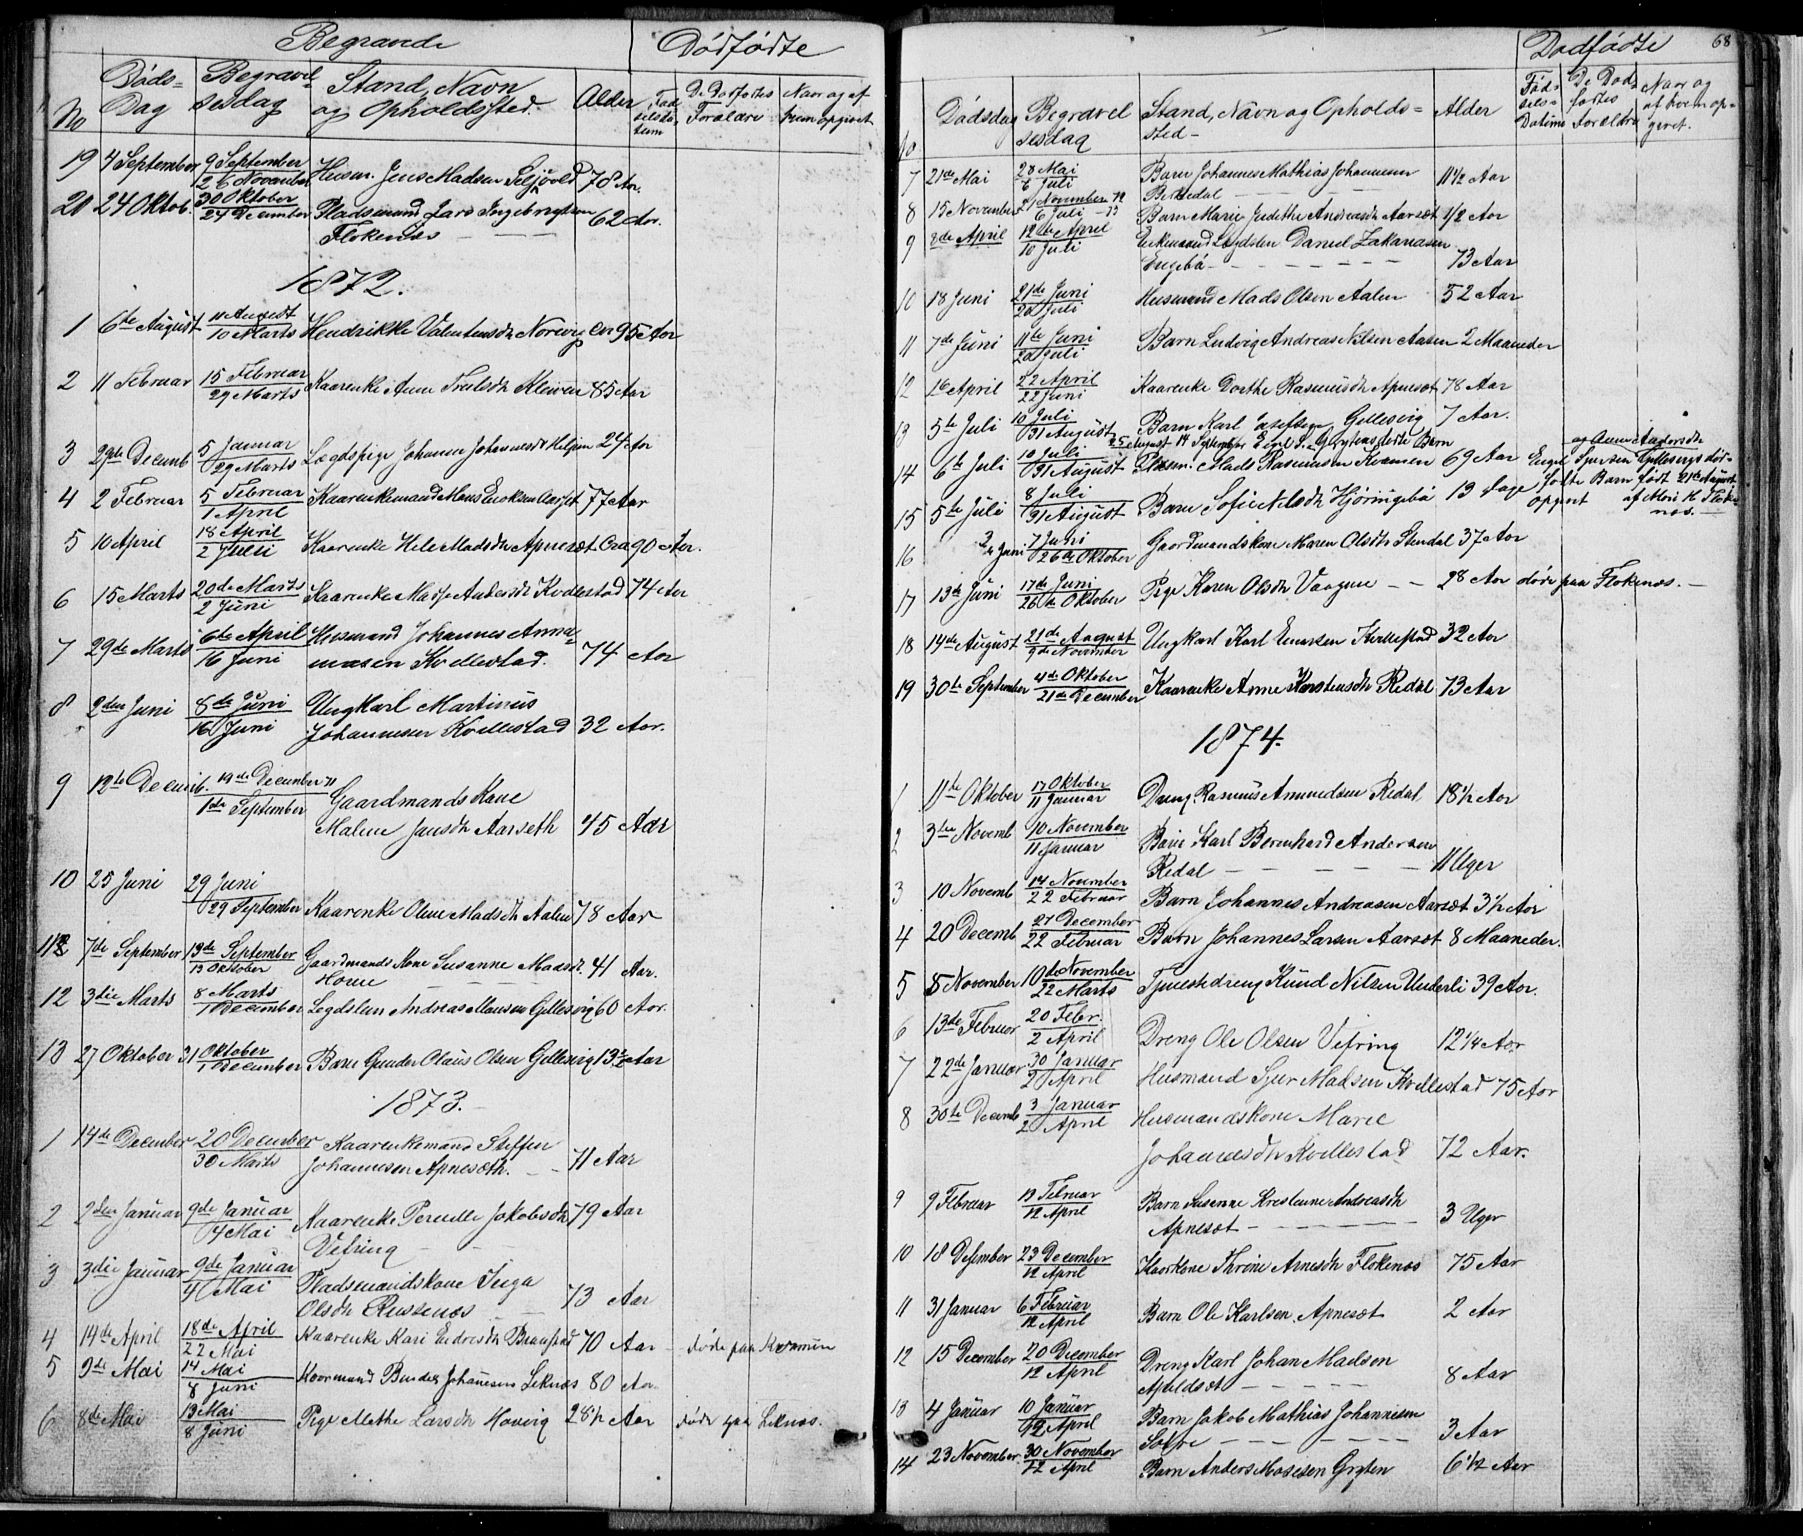 Begravede
Dødfødte
No
Døds-Dag
Begravelsesdag
Stand, Navn og Opholdssted.
Alder
Fødselsdatum
De Dødfødtes Forældre
Naar og af hvem opgivet
19 4 September 9 September / 26 November Husm. Jens Madsen 78 Aar.
20 24 Oktob. 30 Oktober / 24 December Pladsmand Lars Ingebrigtsen 62 Aar.
Flokenæs
1872.
1 6te August 11 August / 10 Marts Hendrikke Valentinsdtr Norevig 95 Aar
2 11 Februar 15 Februar / 29 Marts Kaarenke Anne Kleiven 85 Aar
3 29de Decemb 5 Januar / 29 Marts Lægdspige Johanne Johannesdtr 24 Aar
4 2 Februar 5 Februar / 1 April Kaarenkemand Mons 77 Aar
5 10 April 18 April / 2 Juni Kaarenke Madsdtr Apnesæt Cra 90 Aar.
6 15 Marts 20de Marts / 2 Juni Kaarenke Andersdtr Kvellestad 74 Aar
7 29de Marts 6te April / 16 Juni Husmand Johannes
Kvellestad. 74 Aar
8 2den Juni 8de Juni / 16 Juni Ungkarl Martinus
Johannesen Kvellestad 32 Aar.
9 12te Decemb. 19de December 71 / 1ste September Gaardmands Kone
Malene Jansdtr Aarseth 45 Aar
10 25 Juni 29 Juni / 29 September Kaarenke Oline Madsdtr Aalen 78 Aar
11 7de September 13de September / 13 Oktober Gaardmands Kone Susanne Madsd. 41 Aar.
12 3die Marts 8 Marts / 1 December Legdslem Andreas Monsen Gillesvig 60 Aar.
13 27 Oktober 31 Oktober / 1 December Barn Gunder Olaus Olsen Gillesvig 13½ Aar
1873.
1 14de December 20 December / 30 Marts Kaarenkemand Steffen
Johannesen Apneseth. 71 Aar
2 2den Januar 9de Januar / 4 Mai Kaarenke Pernille Jakobsdtr 79 Aar
Vefring
3 3die Januar 9de Januar / 4 Mai Pladsmandskone Inga
Olsdtr Russenæs 73 Aar
4 14de April 18de April / 22 Mai Kaarenke Kari Endresdtr 70 Aar døde paa Kvamme
5 9de Mai 14 Mai / 8 Juni Koormand Bendik Johanesen Leknæs 80 Aar
6 8de Mai 13 Mai / 8 Juni Pige Mathe Larsdtr Hovvig 28½ Aar døde paa Leknæs.
68
Dødfødte
Dødsdag
Begravelsesdag
Stand, Navn og Opholdssted-
Alder
Fødselsdatum
De Dødfødtes Forældre
Naar og af hvem opgivet.
7 21de Mai 28 Mai / 6 Juli Barn Johannes Mathias Johannesen 11½ Aar
Redal
8 15 November 21 November 72 / 6 Juli - 73 Barn Marie Judithe Andreasdtr Aarsæt ½ Aar
9 8de April 12te April / 10 Juli Enkemand Lægdslem Daniel Zakariasen
Engebø 73 Aar
10 18 Juni 21de Juni / 20 Juli Husmand Mads Olsen Aalen 52 Aar
11 7de Juni 11te Juni / 20 Juli Barn Ludvig Andreas Nilsen Aasen 2 Maaneder
12 16 April 22 April / 22 Juni Kaarenke Dorthe Rasmusdtr Apnesæt 78 Aar
13 5te Juli 10 Juli / 31 August Barn Karl Josefsen Gillesvig 7 Aar.
25 August 14 September
14 6te Juli 10 Juli / 31 August Mads Rasmussen Kvamen 69 Aar
og Anne Andersdtr
Engel Sjursen Gillesvigs død-
fødte Barn født 21de August
opgivet af Mari H. Flokenæs.
15 5te Juli 8 Juli / 31 August Barn Sofie Nilsdtr Hjøringebø 13 Dage
16 2 Juni 7 Juni / 26de Oktober Gaardmandskone Maren Olsdtr Stendal 37 Aar
17 13de Juni 17de Juni / 26de Oktober Pige Karen Olsdtr Vaagene 28 Aar døde paa Flokenæs.
18 14de August 21de August / 9de November Ungkarl Karl Einarsen Kvellestad 32 Aar
19 30te September 4de Oktober / 21de December Kaarenke Anne Karstensdtr Redal 73 Aar
1874.
1 11te Oktober 17 Oktober / 11 Januar Dreng Rasmus Amundsen Redal 18½ Aar
2 3die Novemb 10 November / 11 Januar Barn Karl Bernhard Andersen
Redal 11 Uger
3 10 Novemb 14 November / 22 Februar Barn Johannes Andreasen Aarsæt 3½ Aar
4 20 Decemb 27 December / 22 Februar Barn Johannes Larsen Aarsæt 8 Maaneder.
5 5 November 10de November / 22 Marts Tjenestedreng Knud Nilsen Underli 39 Aar.
6 13de Februar 20 Febr. / 2 April Dreng Ole Olsen Vefring 12¼ Aar
7 22de Januar 30 Januar / 2 April Husmand Sjur Madsen Kvellestad 75 Aar
8 30te Decemb 3 Januar / 2 April Husmandskone Marie
Johannesdtr Kvellestad 72 Aar.
9 9 Februar 13 Februar / 12 April Barn Susanne Kristenne Andreasdtr
Apnesæt 3 Uger
10 18 Desember 23 December / 12 April Kaarkone Thrine Arnesdtr Flokenæs 75 Aar
11 31 Januar 6 Februar / 12 April Barn Ole Karlsen Apnesæt 2 Aar
12 15 December 20 December / 12 April Dreng Karl Johan Madsen
Apaldsæt 8 Aar
13 4 Januar 10 Januar / 12 April Barn Jakob Mathias Johannesen
3 Aar
14 23 November 30 November / 12 April Barn Anders Mosesen Gryten 6½ Aar